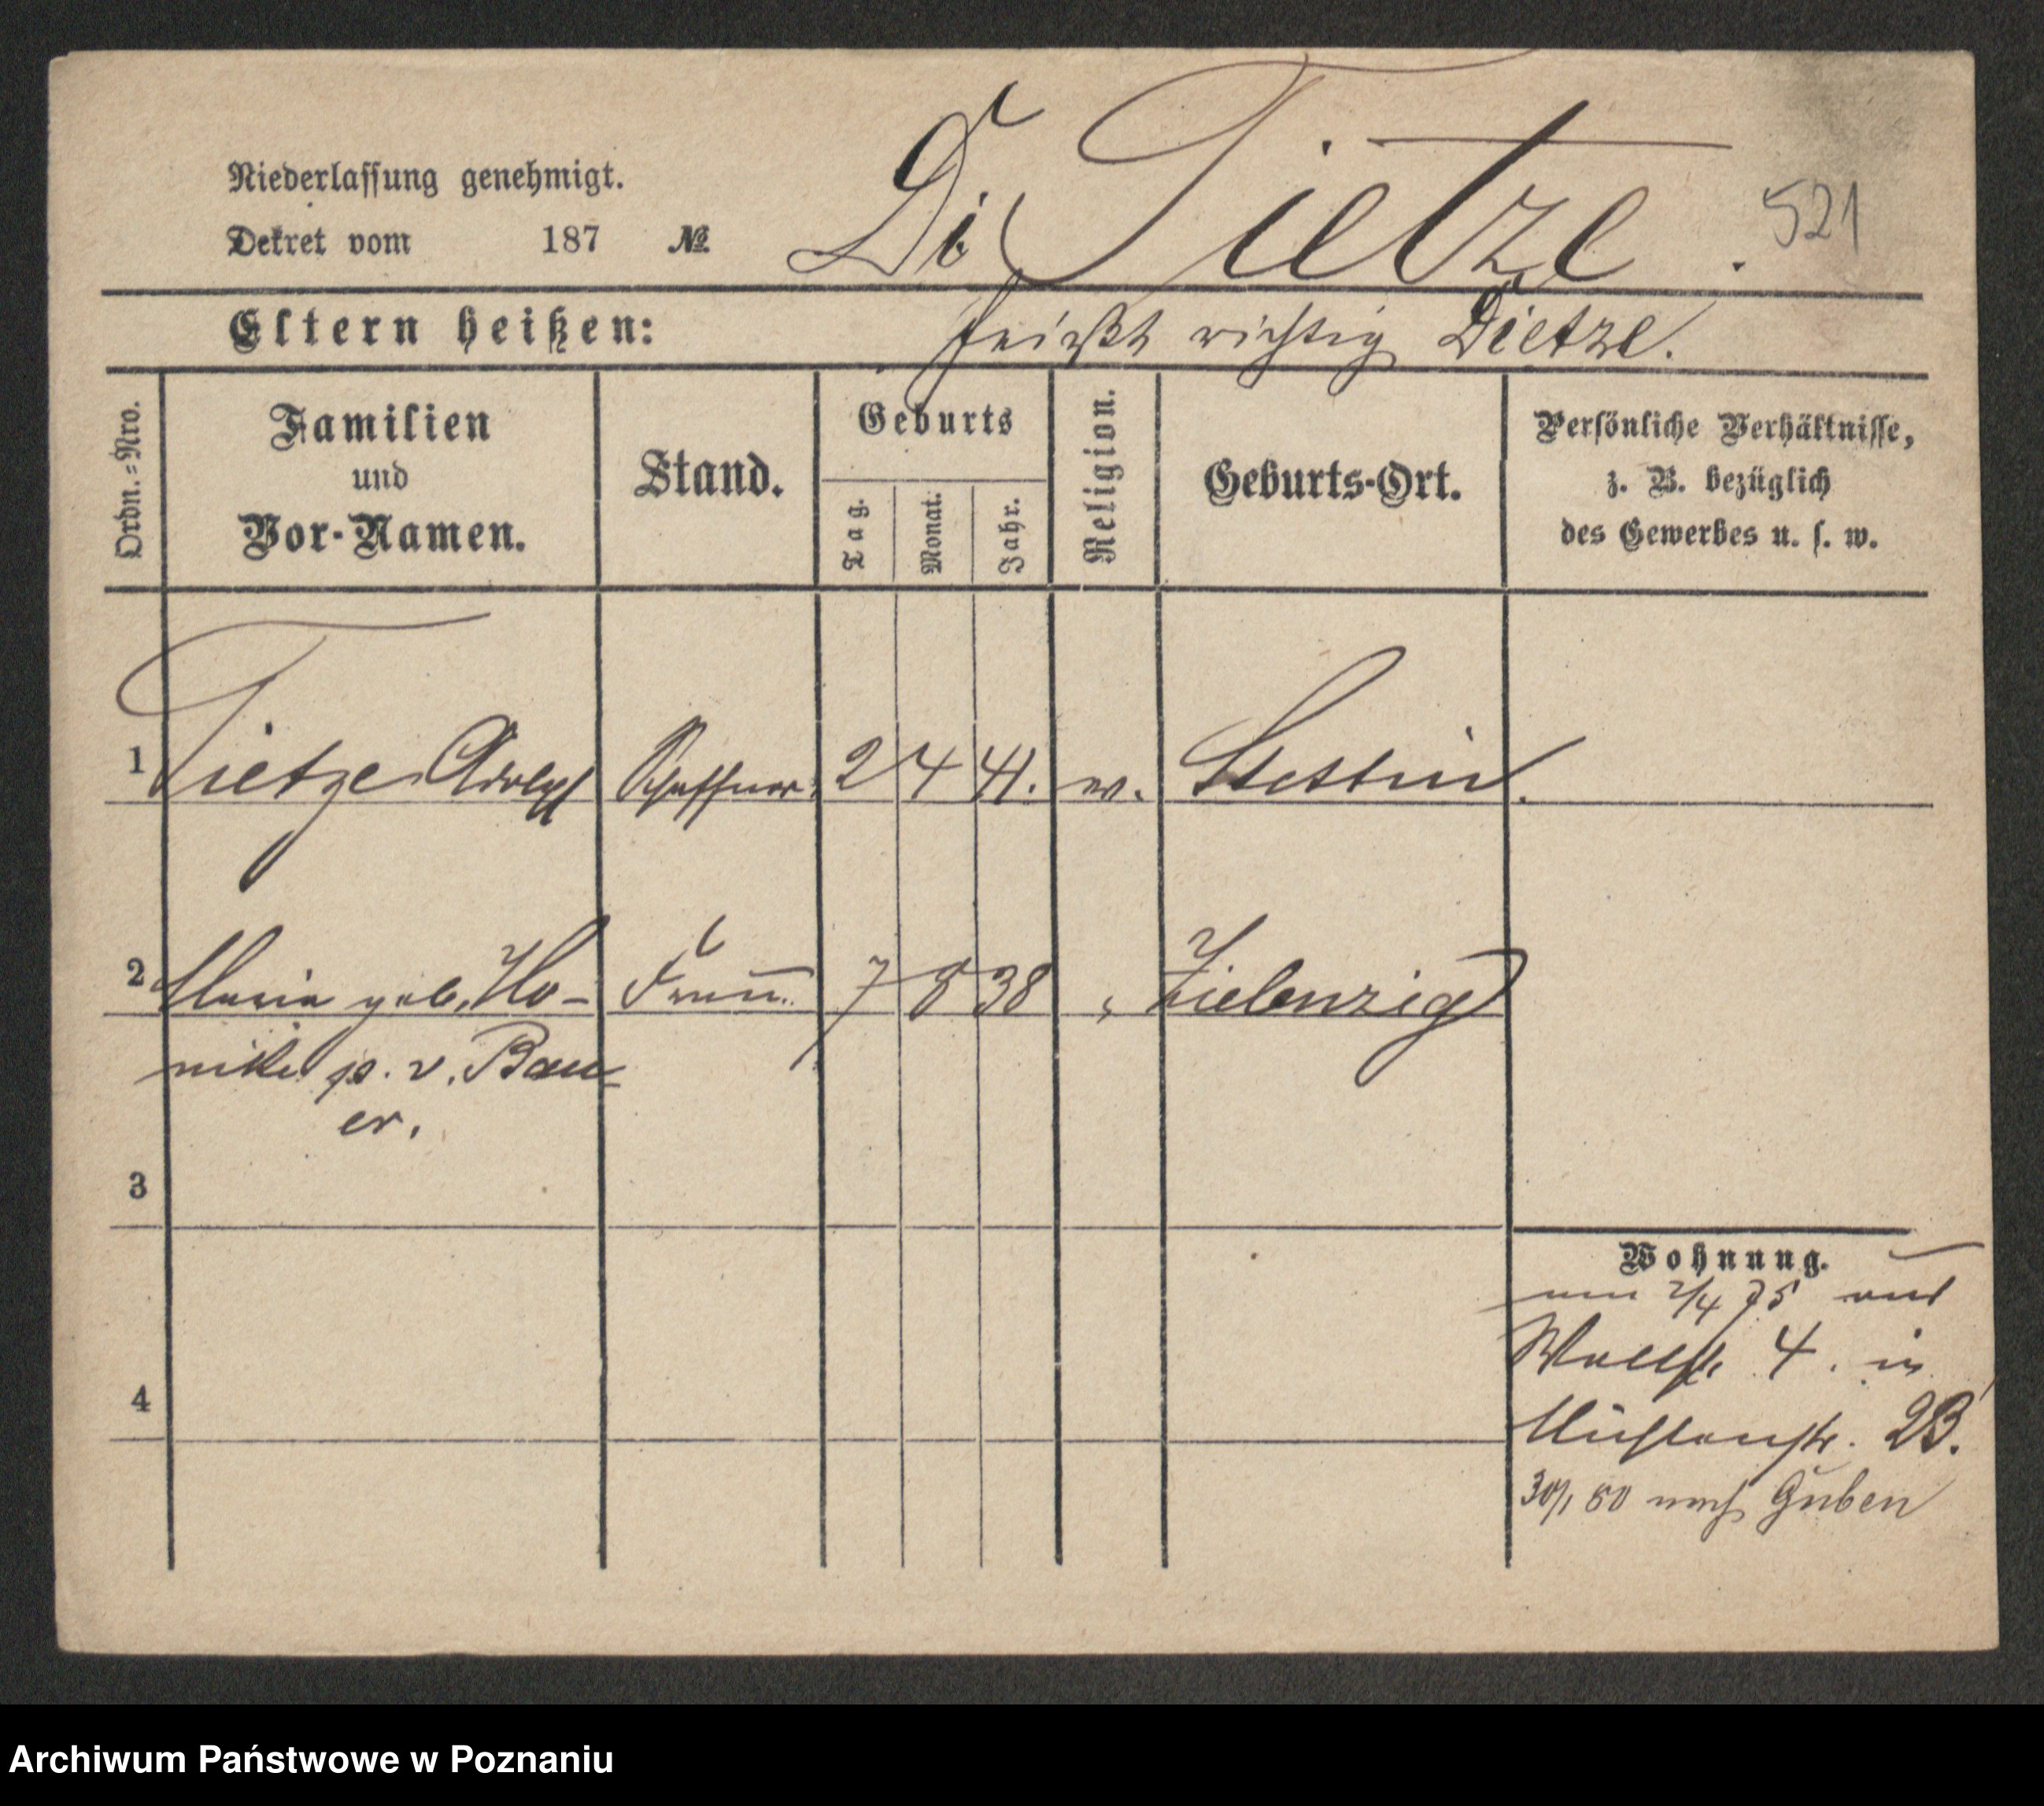 Niederlassung genehmigt.
Dekret vom 187 №
Di Tietze. 521
Eltern heißen:
heißt richtig Dietze.
Ordn.=Nro.
Familien
und
Vor-Namen.
Stand.
Geburts
Tag.
Monat.
Jahr.
Religion.
Geburts-Ort.
Persönliche Verhältnisse,
z. B. bezüglich
des Gewerbes u. s. w.
1 Tietze Adolph Schaffner 2 4 41. ev. Stettin.
2 Maria geb. Ho- Frau 7 8 38 " Zielenzig
nike p. v. Bau-
er.
3
Wohnung.
2/4 75 aus
Wallstr 4. in
4
Mühlenstr. 23.
30/1 80 nach Guben
Archiwum Państwowe w Poznaniu